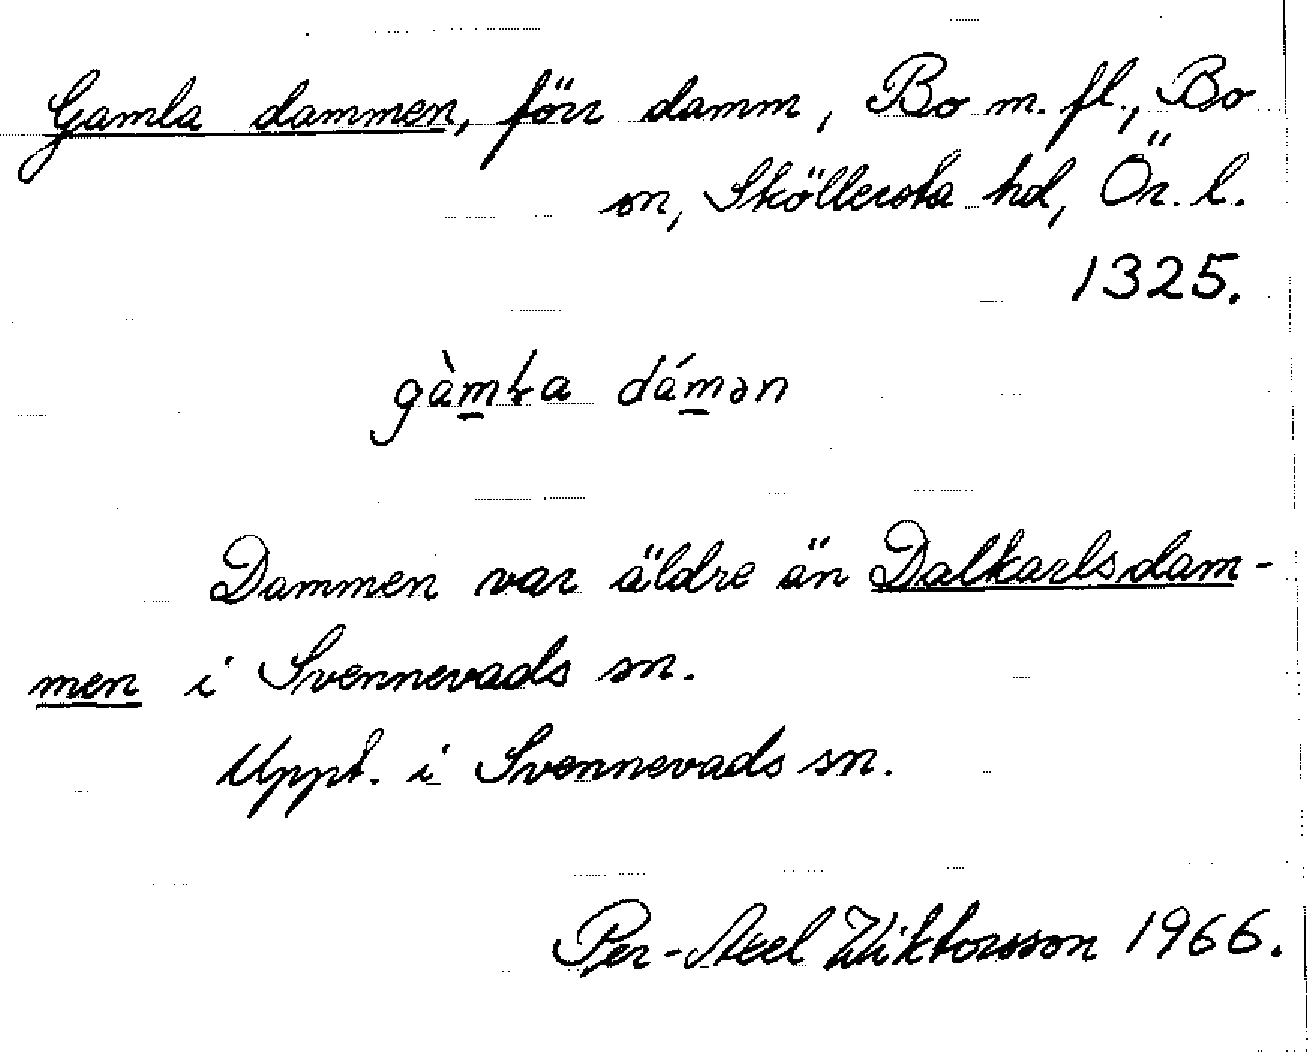 Gamla dammen, förr damm, Bo m. fl., Bo
sn, Sköllersta hd, Ör. l.
1325.
gàm̲ɫa dám̲ən
Dammen var äldre än Dalkarlsdam-
men i Svennevads sn.
Uppt. i Svennevads sn.
Per-Axel Wiktorsson 1966.